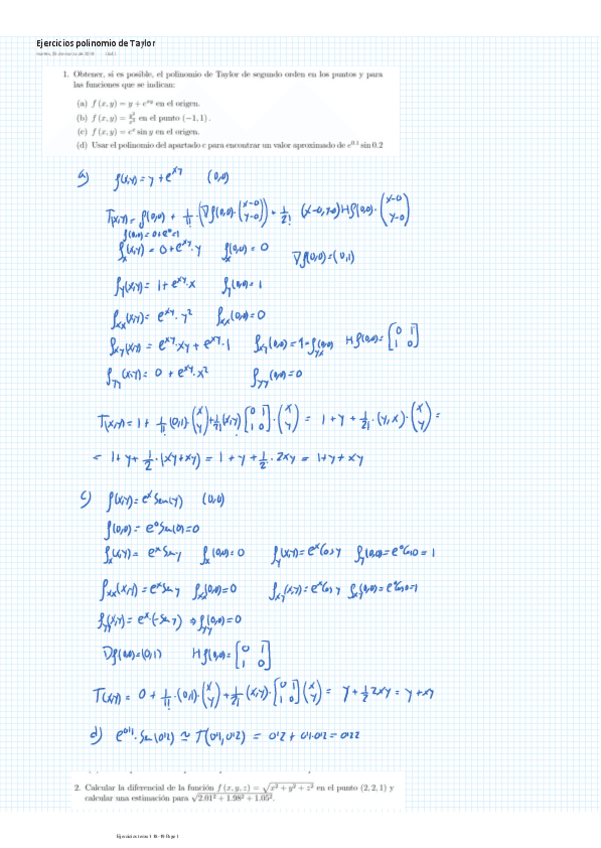 Ejercicios polinomio de Taylor
1. Obtener, si es posible, el polinomio de Taylor de segundo orden en los puntos y para
las funciones que se indican:
(a) f (x, y) = y + e^{xy} en el origen.
(b) en el punto (−1, 1) .
(c) f (x, y) = e^x sin y en el origen.
(d) Usar el polinomio del apartado c para encontrar un valor aproximado de e^{0.1} sin 0.2
a) f(x,y) = y + e^{xy} (0,0)
T(x,y) = f(0,0) + 1/1! · (∇f(0,0) · (x-0 y-0)) + 1/2! (x-0, y-0) Hf(0,0) · (x-0 y-0)
f(0,0) = 0 + e^0 = 1
f_x(x,y) = 0 + e^{xy} · y f_x(0,0) = 0 ∇f(0,0) = (0,1)
f_y(x,y) = 1 + e^{xy} · x f_y(0,0) = 1
f_xx(x,y) = e^{xy} · y^2 f_xx(0,0) = 0
f_xy(x,y) = e^{xy} · xy + e^{xy} · 1 f_xy(0,0) = 1 = f_yx(0,0) Hf(0,0) = [0 1 1 0]
f_yy(x,y) = 0 + e^{xy} · x^2 f_yy(0,0) = 0
T(x,y) = 1 + 1/1! (0,1) · (x y) + 1/2! (x,y) [0 1 1 0] · (x y) = 1 + y + 1/2! · (y,x) · (x y) =
= 1 + y + 1/2 · (xy + xy) = 1 + y + 1/2 · 2xy = 1 + y + xy
c) f(x,y) = e^x sen(y) (0,0)
f(0,0) = e^0 sen(0) = 0
f_x(x,y) = e^x sen y f_x(0,0) = 0 f_y(x,y) = e^x cos y f_y(0,0) = e^0 cos 0 = 1
f_xx(x,y) = e^x sen y f_xx(0,0) = 0 f_xy(x,y) = e^x cos y f_xy(0,0) = e^0 cos 0 = 1
f_yy(x,y) = e^x · (-sen y) f_yy(0,0) = 0
∇f(0,0) = (0,1) Hf(0,0) = [0 1 1 0]
T(x,y) = 0 + 1/1! · (0,1) · (x y) + 1/2! · (x,y) · [0 1 1 0] (x y) = y + 1/2 2xy = y + xy
d) e^{0'1} · sen(0'2) ≃ T(0'1, 0'2) = 0'2 + 0'1·0'2 = 0'22
2. Calcular la diferencial de la función f (x, y, z) = √(x^2 + y^2 + z^2) en el punto (2, 2, 1) y
calcular una estimación para √(2.01^2 + 1.98^2 + 1.05^2).